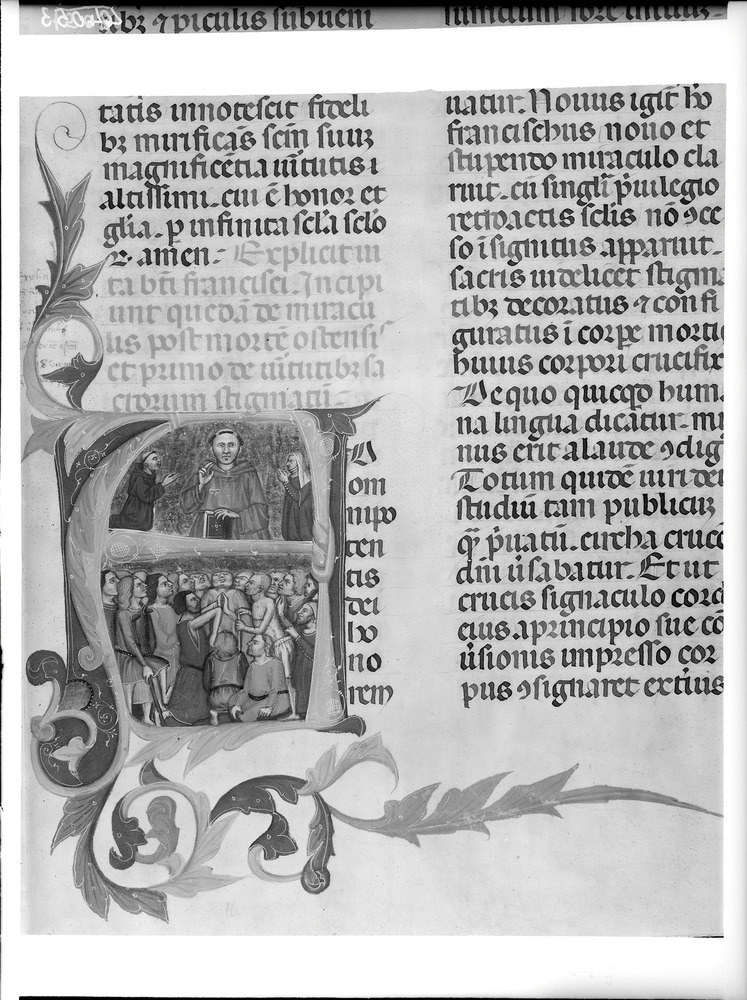 tatis innotescit fideli
bꝫ mirificãs sc̃m suuꝫ
magnificẽtia uĩtutis ı
altissimi. cui ẽ honoꝛ et
glĩa. ꝑ infinita sclã sclõ
ꝝ. amen. Explicit ui
ta bt̃i francisci. Incipi
unt quedã de miracu
lis post moꝛtẽ ostensis
et primo de uĩtutibꝫ sa
croꝛum stigmatũ.
D
om
nipo
ten
tis
dei
ho
no
rem
uatur. Nouus igit̃ hõ
franciscus nouo et
stupendo miraculo cla
ruit. cũ singlĩ p̃uilegio
retroactis sclĩs nõ ꝯce
so ĩsignitus apparuit.
sacris uidelicet stigma
tibꝫ decoratus ⁊ confi
guratus ĩ corpe moꝛti
huius corpoꝛi crucifix
De quo quicqd hum
na lingua dicatur. mi
nus erit a laude ꝯdig
Totum quidẽ uiri dei
studiũ tam publicuꝫ
q̃ p̃uatũ. circha cruce
dñi ũsabatur. Et ut
crucis signaculo coꝛd
eius a principio sue cõ
ũsionis impresso coꝛ
pus ꝯsignaret extius